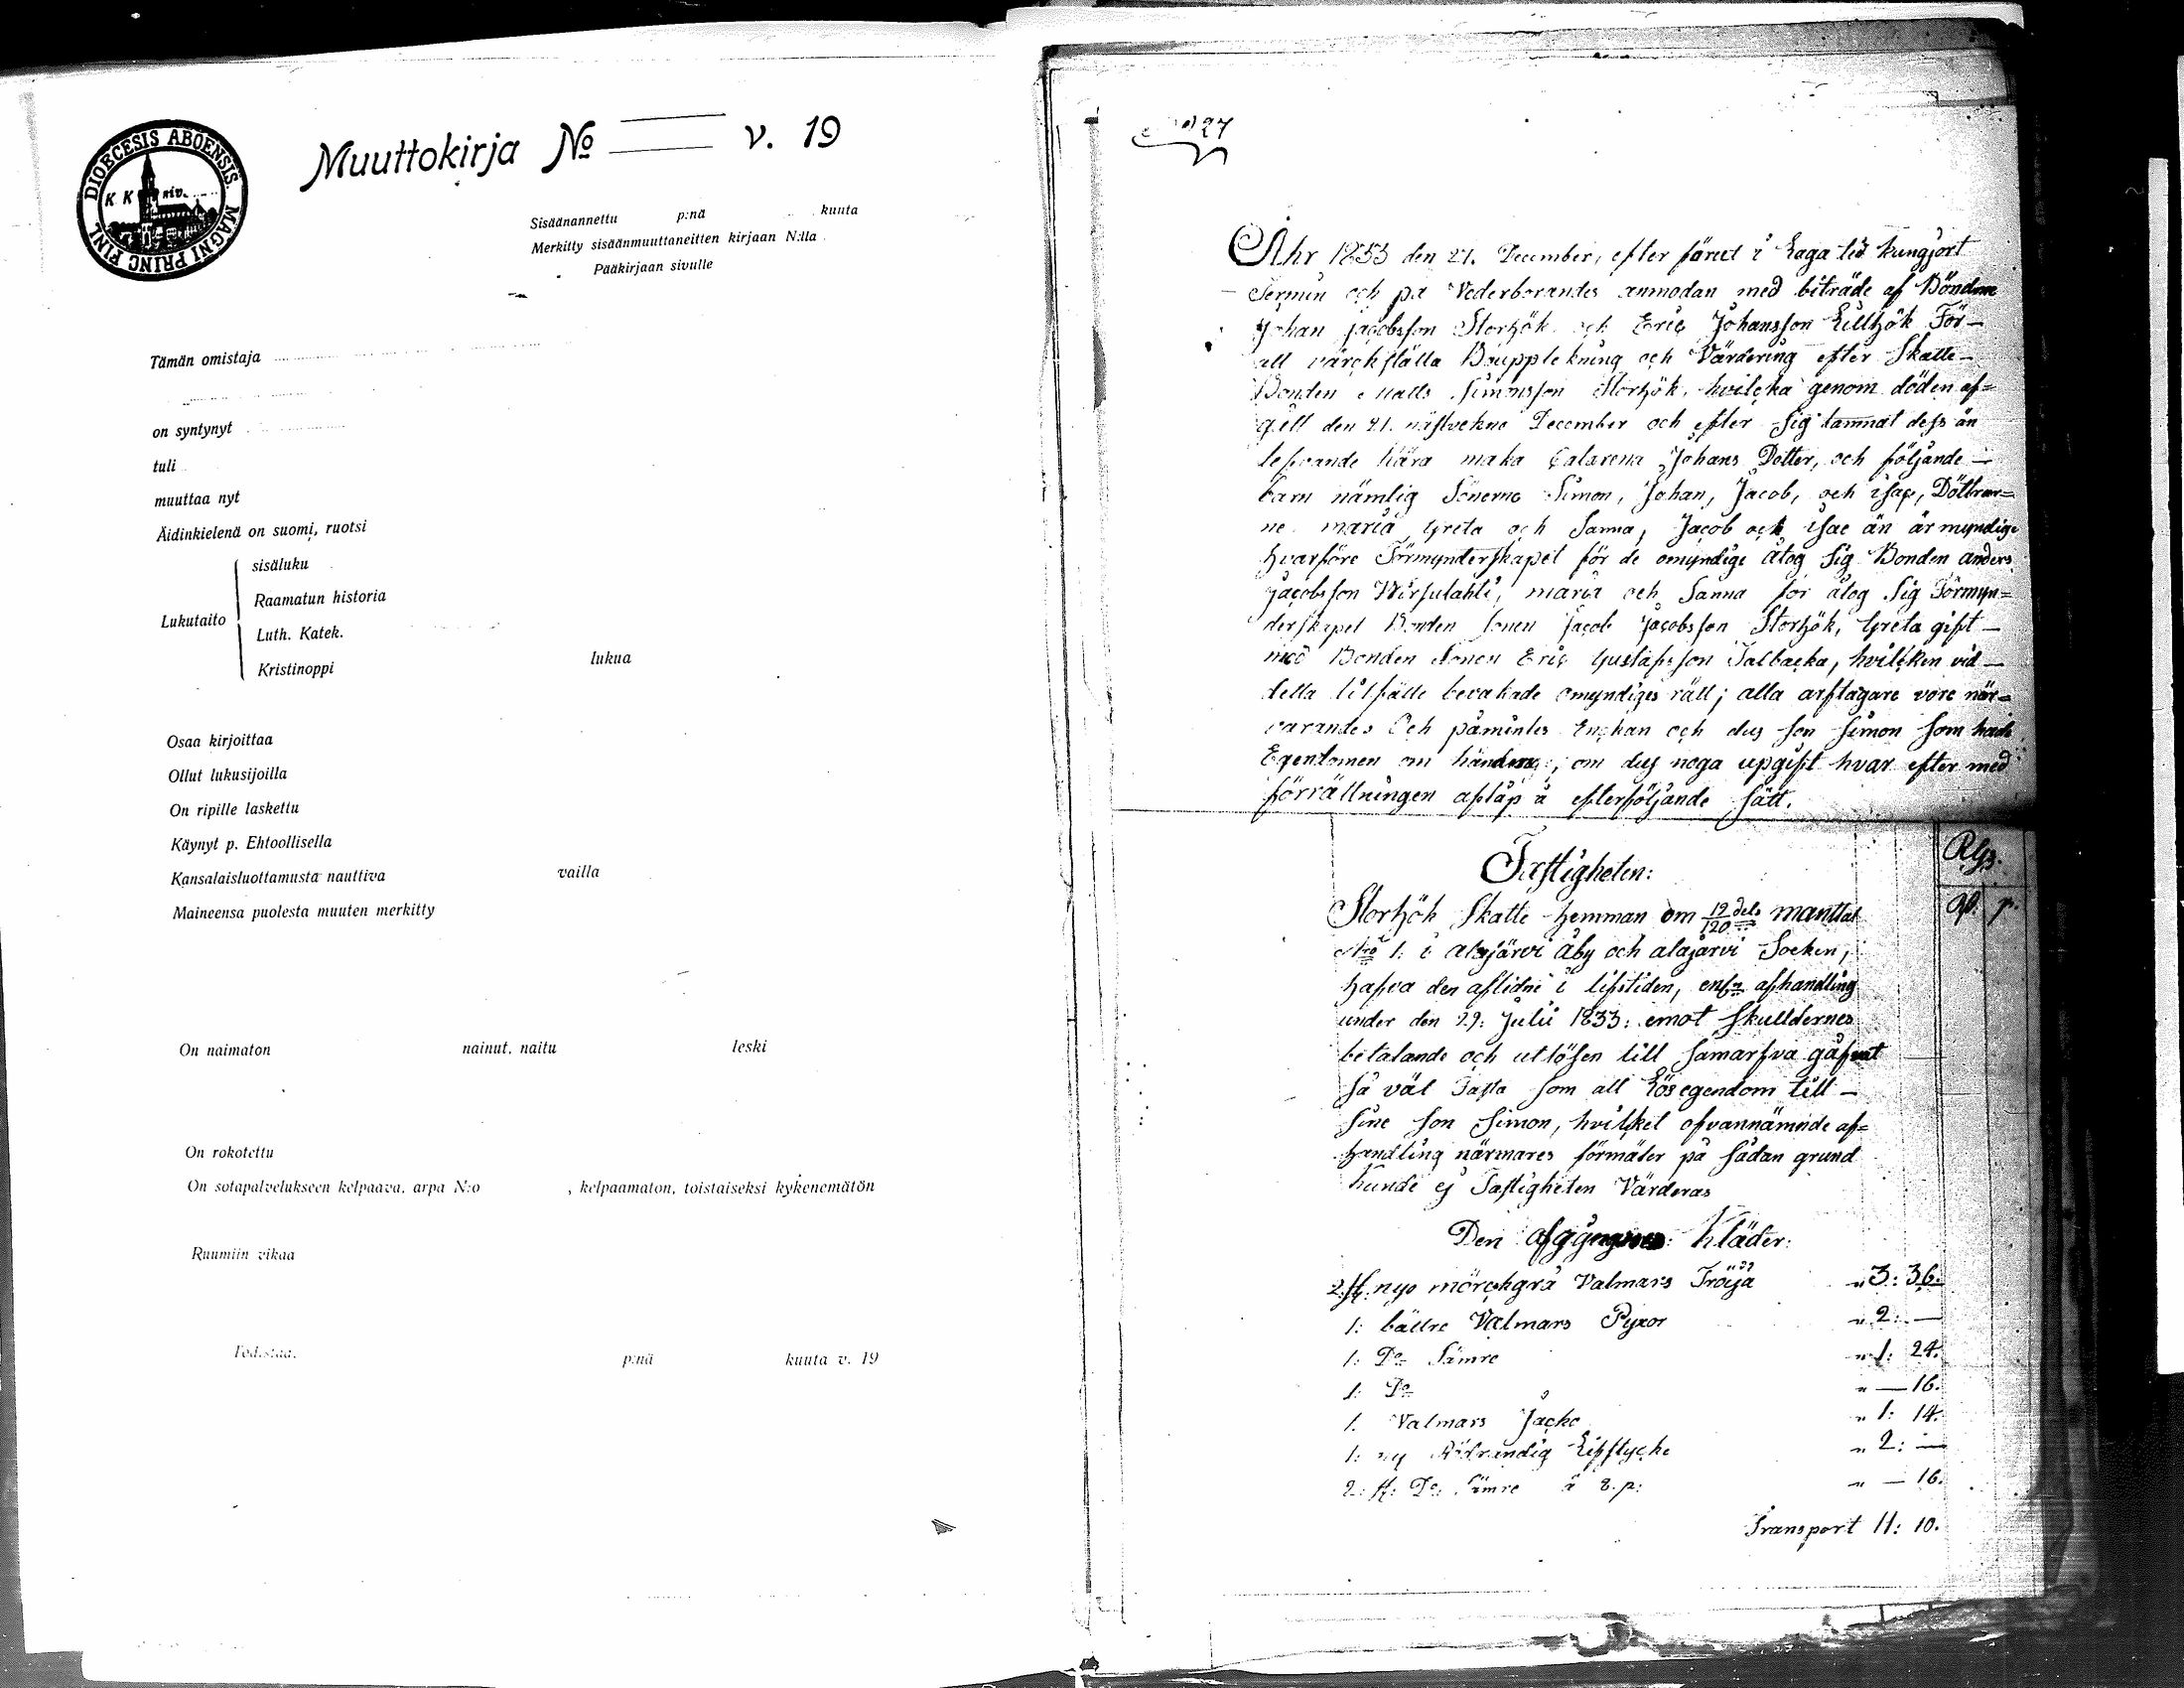 DIOECESIS ABOENSIS MAGNI PRINC FINL
Muuttokirja No v. 19
Sisäänannettu p:nä kuuta
Merkitty sisäänmuuttaneitten kirjaan N:lla
Pääkirjaan sivulle
Tämän omistaja
on syntynyt
tuli
muuttaa nyt
Äidinkielenä on suomi, ruotsi
Lukutaito
sisäluku
Raamatun historia
Luth. Katek.
Kristinoppi lukua
Osaa kirjoittaa
Ollut lukusijoilla
On ripille laskettu
Käynyt p. Ehtoollisella
Kansalaisluottamusta nauttiva vailla
Maineensa puolesta muuten merkitty
On naimaton nainut, naitu leski
On rokotettu
On sotapalvelukseen kelpaava, arpa N:o , kelpaamaton, toistaiseksi kykenemätön
Ruumiin vikaa
Todistaa.
p:nä kuuta v. 19
27
Åhr 1833 den 27. December, efter förut i Laga tid kungjort
Termin och på Vederborandes anmodan med biträde af Bönderne
Johan Jacobsson Storhök och Eric Johansson Lillhök För-
att värckställa Bouppteckning och Värdering efter Skatte-
Bonden Matts Simonsson Storhök, hvilcka genom döden af=
gått den 21. December och efter sig lämnat dess än
lefvande kära maka Catarena Johans Dotter, och följande
barn nämlig Sönerne Simon, Johan, Jacob, och isac, Döttrar=
ne maria Greta och Sanna, Jacob och isac än är myndige
hvarföre Förmynderskapet för de omyndige åtog sig Bonden anders
Jacobsson Wirsulahti, maria och Sanna för åtog sig Förmyn=
derskapet Bonden Sonen Jacob Jacobsson Storhök, Greta gift
med Bonden Sonen Eric Gustafsson Talbacka, hvilcken vid
detta tilfälle bevakade omyndiges rätt; alla arftagare vore när=
varandes Och påmintes Enckan och dess son Simon som hade
Egendomen om händer, om dess noga upgift hvar efter med
förrättningen aflåp å efterföljande sätt.
Fastigheten:
Storhök Skatte hemman om 19/120 dels manttal
No 1: i alajärvi åby och alajärvi Socken,
hafva den aflidne i lifstiden, afhandling
under den 29: Julii 1833: emot Skulldernes
betalande och utlösen till Samarfva gåfvat
så väl Fasta som all Lösegendom till
sine son Simon, hvilcket ofvannämnde af=
handling närmares förmäler på sådan grund
kunde ej Fastigheten Värderas
Rgs.
p.
Den afgångnes Kläder:
2: st: nya mörckgrå Valmars Tröija " 3: 36.
1: bättre Valmars Pyxor " 2: —
1: Do Sämre " 1: 24.
1: Do " — 16.
1. Valmars Jacke " 1: 14.
1: ny Rödrandig Lifstycke " 2: —
2: st: Do: Sämre å 8. p: " — 16.
Transport 11: 10.